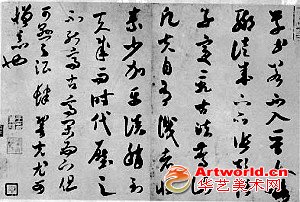 草書若不入晉人格
輒徒成下品張顛俗
子變亂古法驚諸
凡夫自有識者懷
素少加平淡稍到
天成而時代壓之
不能高古高閑而下但
可懸之酒肆䛒光尤可
憎惡也
Artworld.cn
华艺美术网